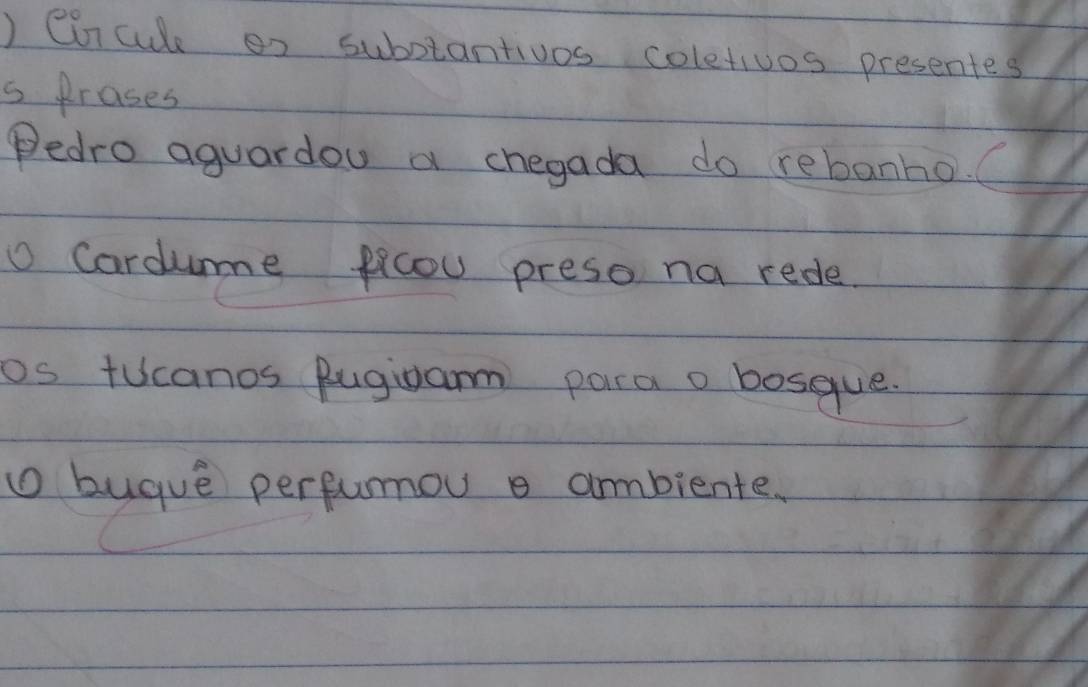 ) Circule os substantivos coletivos presentes
s frases
Pedro aguardou a chegada do rebanho.
O Cardume ficou preso na rede.
os tucanos fugiram para o bosque.
O buquê perfumou o ambiente.